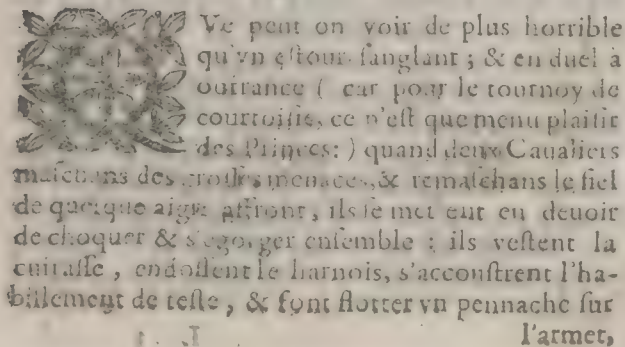 Ve peut on voir de plus horrible
qu'vn eſtour ſanglant ; & en duel à
outrance ( car pour le tournoy de
courtoiſie, ce n'eſt que menu plaiſir
des Princes: ) quand deux Caualiers
des groſſes menaces, & remaſchans le fiel
de quelque aigre affront, ils ſe mettent en deuoir
de choquer & s'egorger enſemble : ils veſtent la
cuiraſſe , endoſſent le harnois, s'accouſtrent l'ha-
billement de teſte , & font flotter vn pennache ſur
l'armet,